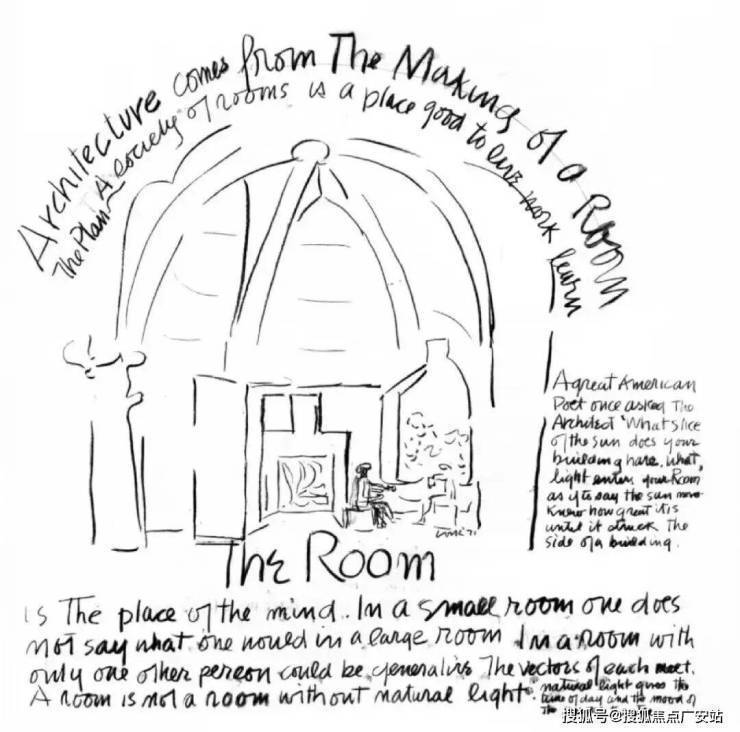 Architecture comes from The Making of a Room
The Plan A society of rooms is a place good to live work learn
A great American
Poet once asked The
Architect 'What slice
of the sun does your
building have, what
light enters your Room
as if to say the sun never
Knew how great it is
until it struck The
side of a building.
The Room
is The place of the mind. In a small room one does
not say what one would in a large room In a room with
only one other person could be generative The vectors of each meet.
A room is not a room without natural light.
natural light gives the
time of day and the mood of
The
搜狐号@搜狐焦点广安站